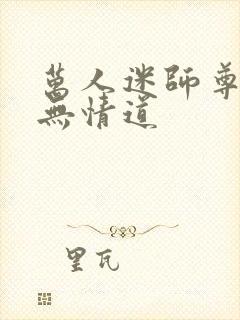 萬人迷師尊
無情道
里瓦